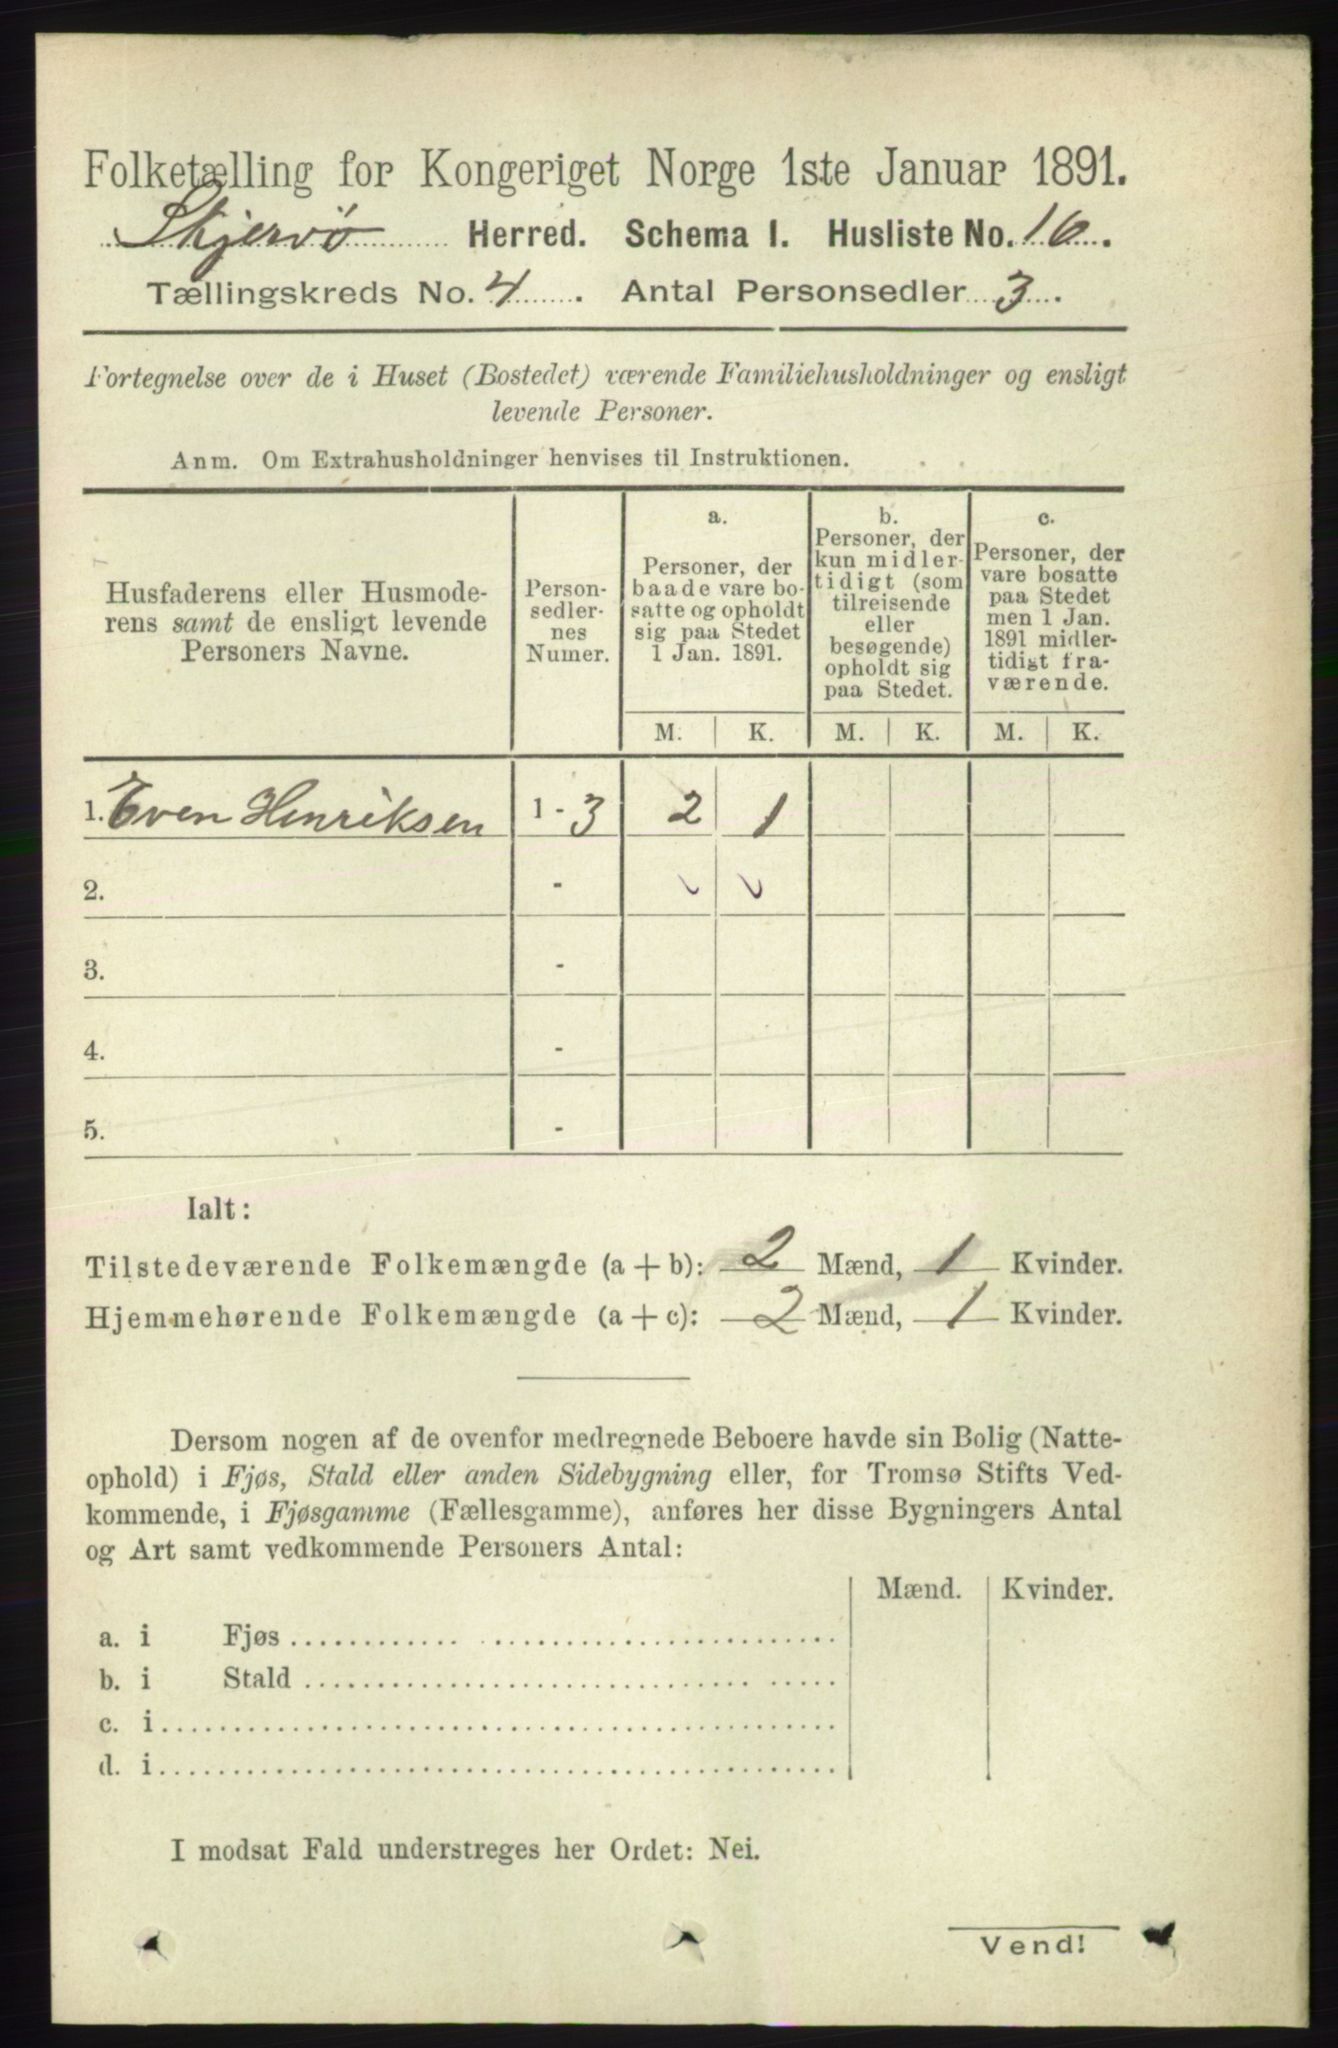 Folketælling for Kongeriget Norge 1ste Januar 1891.
Skjervö Herred. Schema I. Husliste No. 16.
Tællingskreds No. 4. Antal Personsedler 3.
Fortegnelse over de i Huset (Bostedet) værende Familiehusholdninger og ensligt
levende Personer.
Anm. Om Extrahusholdninger henvises til Instruktionen.
Husfaderens eller Husmode-
rens samt de ensligt levende
Personers Navne.
Person-
sedler-
nes
Numer.
a.
Personer, der
baade vare bo-
satte og opholdt
sig paa Stedet
1 Jan. 1891.
b.
Personer, der
kun midler-
tidigt (som
tilreisende
eller
besøgende)
opholdt sig
paa Stedet.
c.
Personer, der
vare bosatte
paa Stedet
men 1 Jan.
1891 midler-
tidigt fra-
værende.
M. K. M. K. M. K.
1. Even Henriksen 1 - 3 2 1
2. -
3. -
4. -
5. -
Ialt:
Tilstedeværende Folkemængde (a + b): 2 Mænd, 1 Kvinder.
Hjemmehørende Folkemængde (a + c): 2 Mænd, 1 Kvinder.
Dersom nogen af de ovenfor medregnede Beboere havde sin Bolig (Natte-
ophold) i Fjøs, Stald eller anden Sidebygning eller, for Tromsø Stifts Ved-
kommende, i Fjøsgamme (Fællesgamme), anføres her disse Bygningers Antal
og Art samt vedkommende Personers Antal:
Mænd. Kvinder.
a. i Fjøs
b. i Stald
c. i
d. i
I modsat Fald understreges her Ordet: Nei.
Vend!